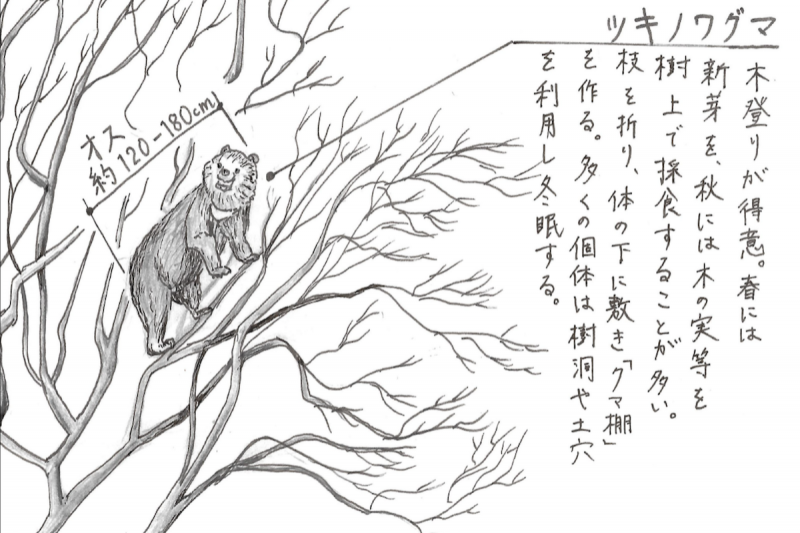 ツキノワグマ
木登りが得意。春には
新芽を、秋には木の実等を
樹上で採食することが多い。
枝を折り、体の下に敷き「クマ棚」
を作る。多くの個体は樹洞や土穴
を利用し冬眠する。
オス
約120-180cm